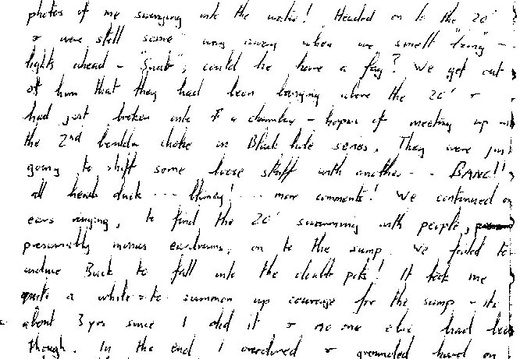 photos of me swinging into the water! Headed on to the 20'
& were still some way away when we smelt "bang" -
lights ahead - "Snab", could he have a fag? We got out
of him that they had been banging above the 20' &
had just broken into a chamber - hopes of meeting up
the 2nd boulder choke in Black hole series. They were just
going to shift some loose stuff with another -- BANG!!
all heads duck --- Blimey! --- more comments! We continued on
ears ringing, to find the 20' swarming with people,
presumably minus eardrums, on to the sump. We failed to
induce Buck to fall into the double pots! It took me
quite a while to summon up courage for the sump - its
about 3 yrs since I did it & no one else had been
though. In the end I & grounded hard on